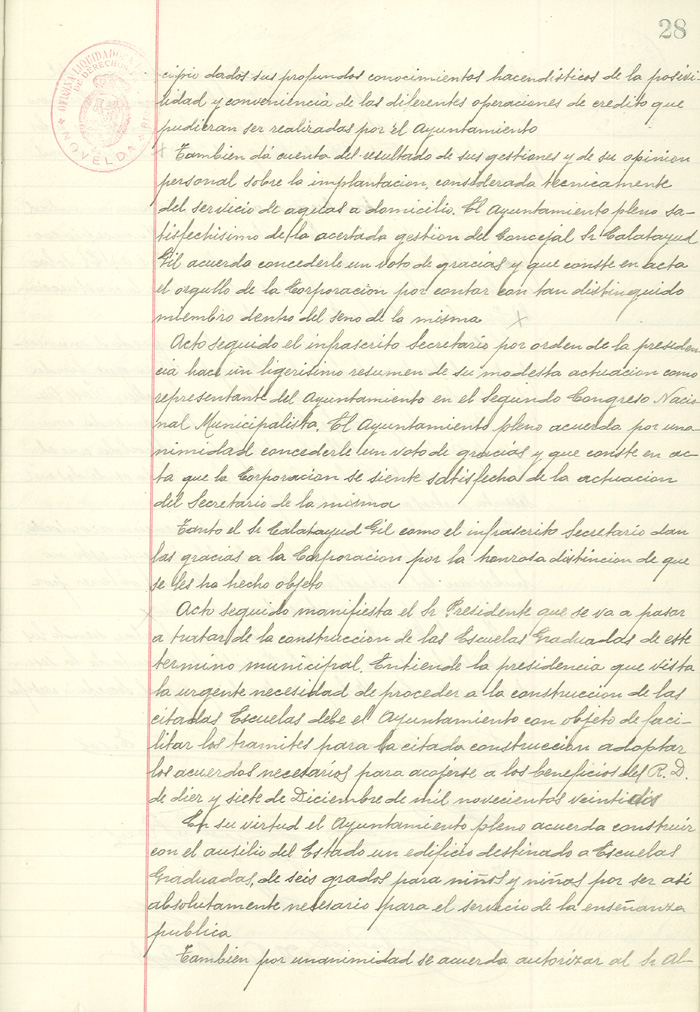 28
OFICINA LIQUIDADORA
DE DERECHOS
NOVELDA
cipio dados sus profundos conocimientos hacendísticos de la posivi-
lidad y conveniencia de las diferentes operaciones de credito que
pudieran ser realizadas por el Ayuntamiento
Tambien dá cuenta del resultado de sus gestiones y de su opinion
personal sobre la implantacion, considerada tecnicamente
del servicio de aguas a domicilio. El Ayuntamiento pleno sa-
tisfechisimo de la acertada gestion del Concejal Sr Calatayud
Gil acuerda concederle un voto de gracias y que conste en acta
el orgullo de la Corporacion por contar con tan distinguido
miembro dentro del seno de la misma
Acto seguido el infrascrito Secretario por orden de la presiden-
cia hace un ligerisimo resumen de su modesta actuacion como
representante del Ayuntamiento en el Segundo Congreso Nacio-
nal Municipalista. El Ayuntamiento pleno acuerda por una-
nimidad concederle un voto de gracias y que conste en ac-
ta que la Corporacion se siente satisfecha de la actuacion
del Secretario de la misma
Tanto el Sr Calatayud Gil como el infrascrito Secretario dan
las gracias a la Corporacion por la honrosa distincion de que
se les ha hecho objeto
Acto seguido manifiesta el Sr Presidente que se va a pasar
a tratar de la construccion de las Escuelas Graduadas de este
termino municipal. Entiende la presidencia que vista
la urgente necesidad de proceder a la construccion de las
citadas Escuelas debe el Ayuntamiento con objeto de faci-
litar los tramites para la citada construccion adoptar
los acuerdos necesarios para acojerse a los beneficios del R. D.
de diez y siete de Diciembre de mil novecientos veintidis
En su virtud el Ayuntamiento pleno acuerda construir
con el ausilio del Estado un edificio destinado a Escuelas
Graduadas, de seis grados para niños y niñas por ser asi
absolutamente necesario para el servicio de la enseñanza
publica
Tambien por unanimidad se acuerda autorizar al Sr Al-